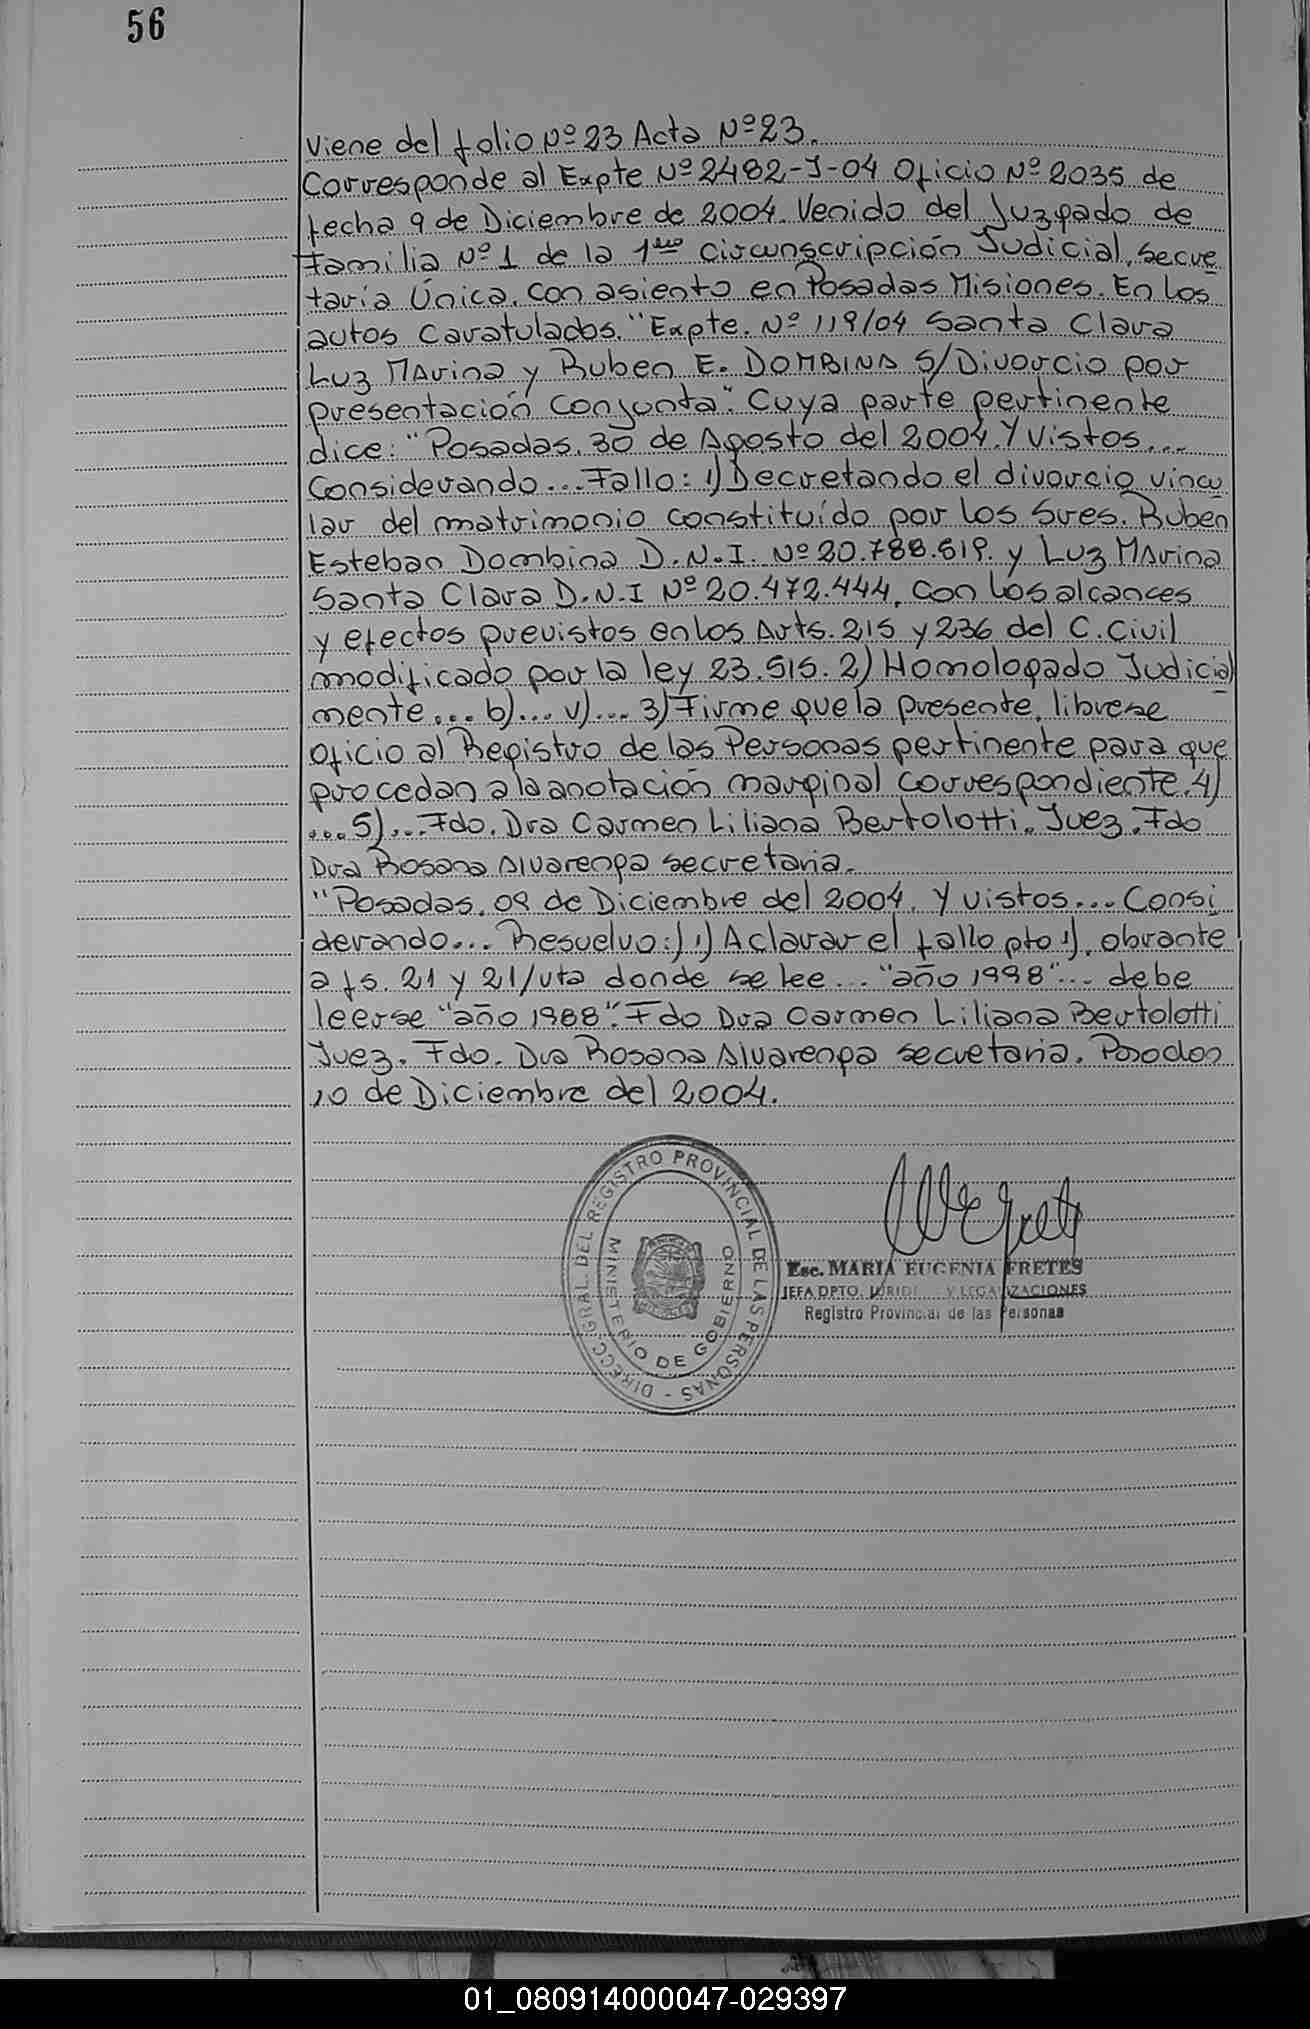 56
Viene del folio Nº 23 Acta Nº 23.
Corresponde al Expte Nº 2482-J-04 Oficio Nº 2035 de
fecha 9 de Diciembre de 2004. Venido del Juzgado de
Familia Nº 1 de la 1era Circunscripción Judicial, secre
taría Única, con asiento en Posadas Misiones. En los
autos Caratulados. "Expte. Nº 119/04 Santa Clara
Luz Marina y Ruben E. DOMBINA S/Divorcio por
presentación Conjunta". Cuya parte pertinente
dice: "Posadas, 30 de Agosto del 2004. Y vistos...
Considerando... Fallo: 1) Decretando el divorcio vincu
lar del matrimonio constituído por los Sres. Ruben
Esteban Dombina D.N.I. Nº 20.788.519. y Luz Marina
Santa Clara D.N.I Nº 20.472.444, con los alcances
y efectos previstos en los Arts. 215 y 236 del C. Civil
modificado por la ley 23.515. 2) Homologado Judicial
mente... b)... v)... 3) Firme que la presente, librese
Oficio al Registro de las Personas pertinente para que
procedan a la anotación marginal correspondiente. 4)
... 5)... Fdo. Dra Carmen Liliana Bertolotti. Juez. Fdo
Dra Rosana Alvarenga secretaria.
"Posadas, 09 de Diciembre del 2004. Y vistos... Consi
derando... Resuelvo:) 1) Aclarar el fallo pto 1), obrante
a fs. 21 y 21/vta donde se lee... "año 1998"... debe
leerse "año 1988". Fdo Dra Carmen Liliana Bertolotti
Juez. Fdo. Dra Rosana Alvarenga secretaria. Posadas
10 de Diciembre del 2004.
DIRECC. GRAL. DEL REGISTRO PROVINCIAL DE LAS PERSONAS -
MINISTERIO DE GOBIERNO
Esc. MARIA EUGENIA FRETES
JEFA DPTO. Y LEGALIZACIONES
Registro Provincial de las Personas
01_080914000047-029397